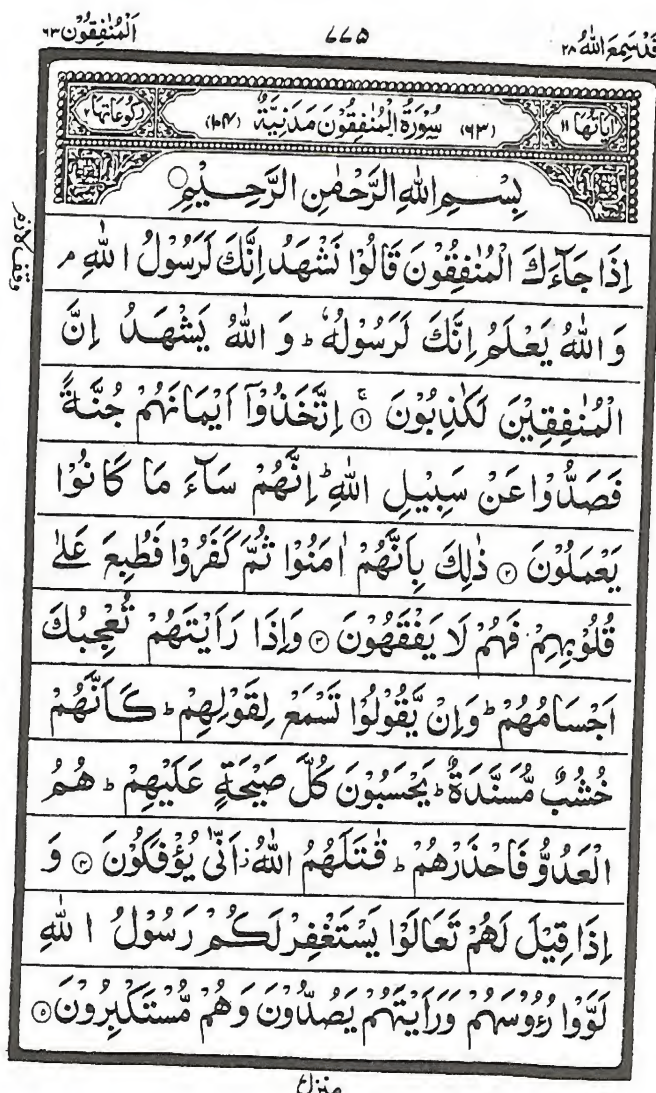 قَدْ سَمِعَ اللّٰهُ ٢٨ ٧٧۵ اَلْمُنٰفِقُوْن ٦٣
اٰيَاتُهَا ١١ (٦٣) سُوْرَةُ الْمُنٰفِقُوْنَ مَدَنِيَّةٌ (١٠٤) رُكُوْعَاتُهَا ٢
بِسْمِ اللّٰهِ الرَّحْمٰنِ الرَّحِيْمِ
اِذَا جَآءَكَ الْمُنٰفِقُوْنَ قَالُوْا نَشْهَدُ اِنَّكَ لَرَسُوْلُ اللّٰهِ ۘ
وقف لازم
وَ اللّٰهُ يَعْلَمُ اِنَّكَ لَرَسُوْلُهٗ ؕ وَ اللّٰهُ يَشْهَدُ اِنَّ
الْمُنٰفِقِيْنَ لَكٰذِبُوْنَ ۚ ١ اِتَّخَذُوْٓا اَيْمَانَهُمْ جُنَّةً
فَصَدُّوْا عَنْ سَبِيْلِ اللّٰهِ ؕ اِنَّهُمْ سَآءَ مَا كَانُوْا
يَعْمَلُوْنَ ٢ ذٰلِكَ بِاَنَّهُمْ اٰمَنُوْا ثُمَّ كَفَرُوْا فَطُبِعَ عَلٰى
قُلُوْبِهِمْ فَهُمْ لَا يَفْقَهُوْنَ ٣ وَاِذَا رَاَيْتَهُمْ تُعْجِبُكَ
اَجْسَامُهُمْ ؕ وَاِنْ يَّقُوْلُوْا تَسْمَعْ لِقَوْلِهِمْ ؕ كَاَنَّهُمْ
خُشُبٌ مُّسَنَّدَةٌ ؕ يَحْسَبُوْنَ كُلَّ صَيْحَةٍ عَلَيْهِمْ ؕ هُمُ
الْعَدُوُّ فَاحْذَرْهُمْ ؕ قٰتَلَهُمُ اللّٰهُ ز اَنّٰى يُؤْفَكُوْنَ ٤ وَ
اِذَا قِيْلَ لَهُمْ تَعَالَوْا يَسْتَغْفِرْ لَكُمْ رَسُوْلُ اللّٰهِ
لَوَّوْا رُءُوْسَهُمْ وَرَاَيْتَهُمْ يَصُدُّوْنَ وَهُمْ مُّسْتَكْبِرُوْنَ ٥
منزل